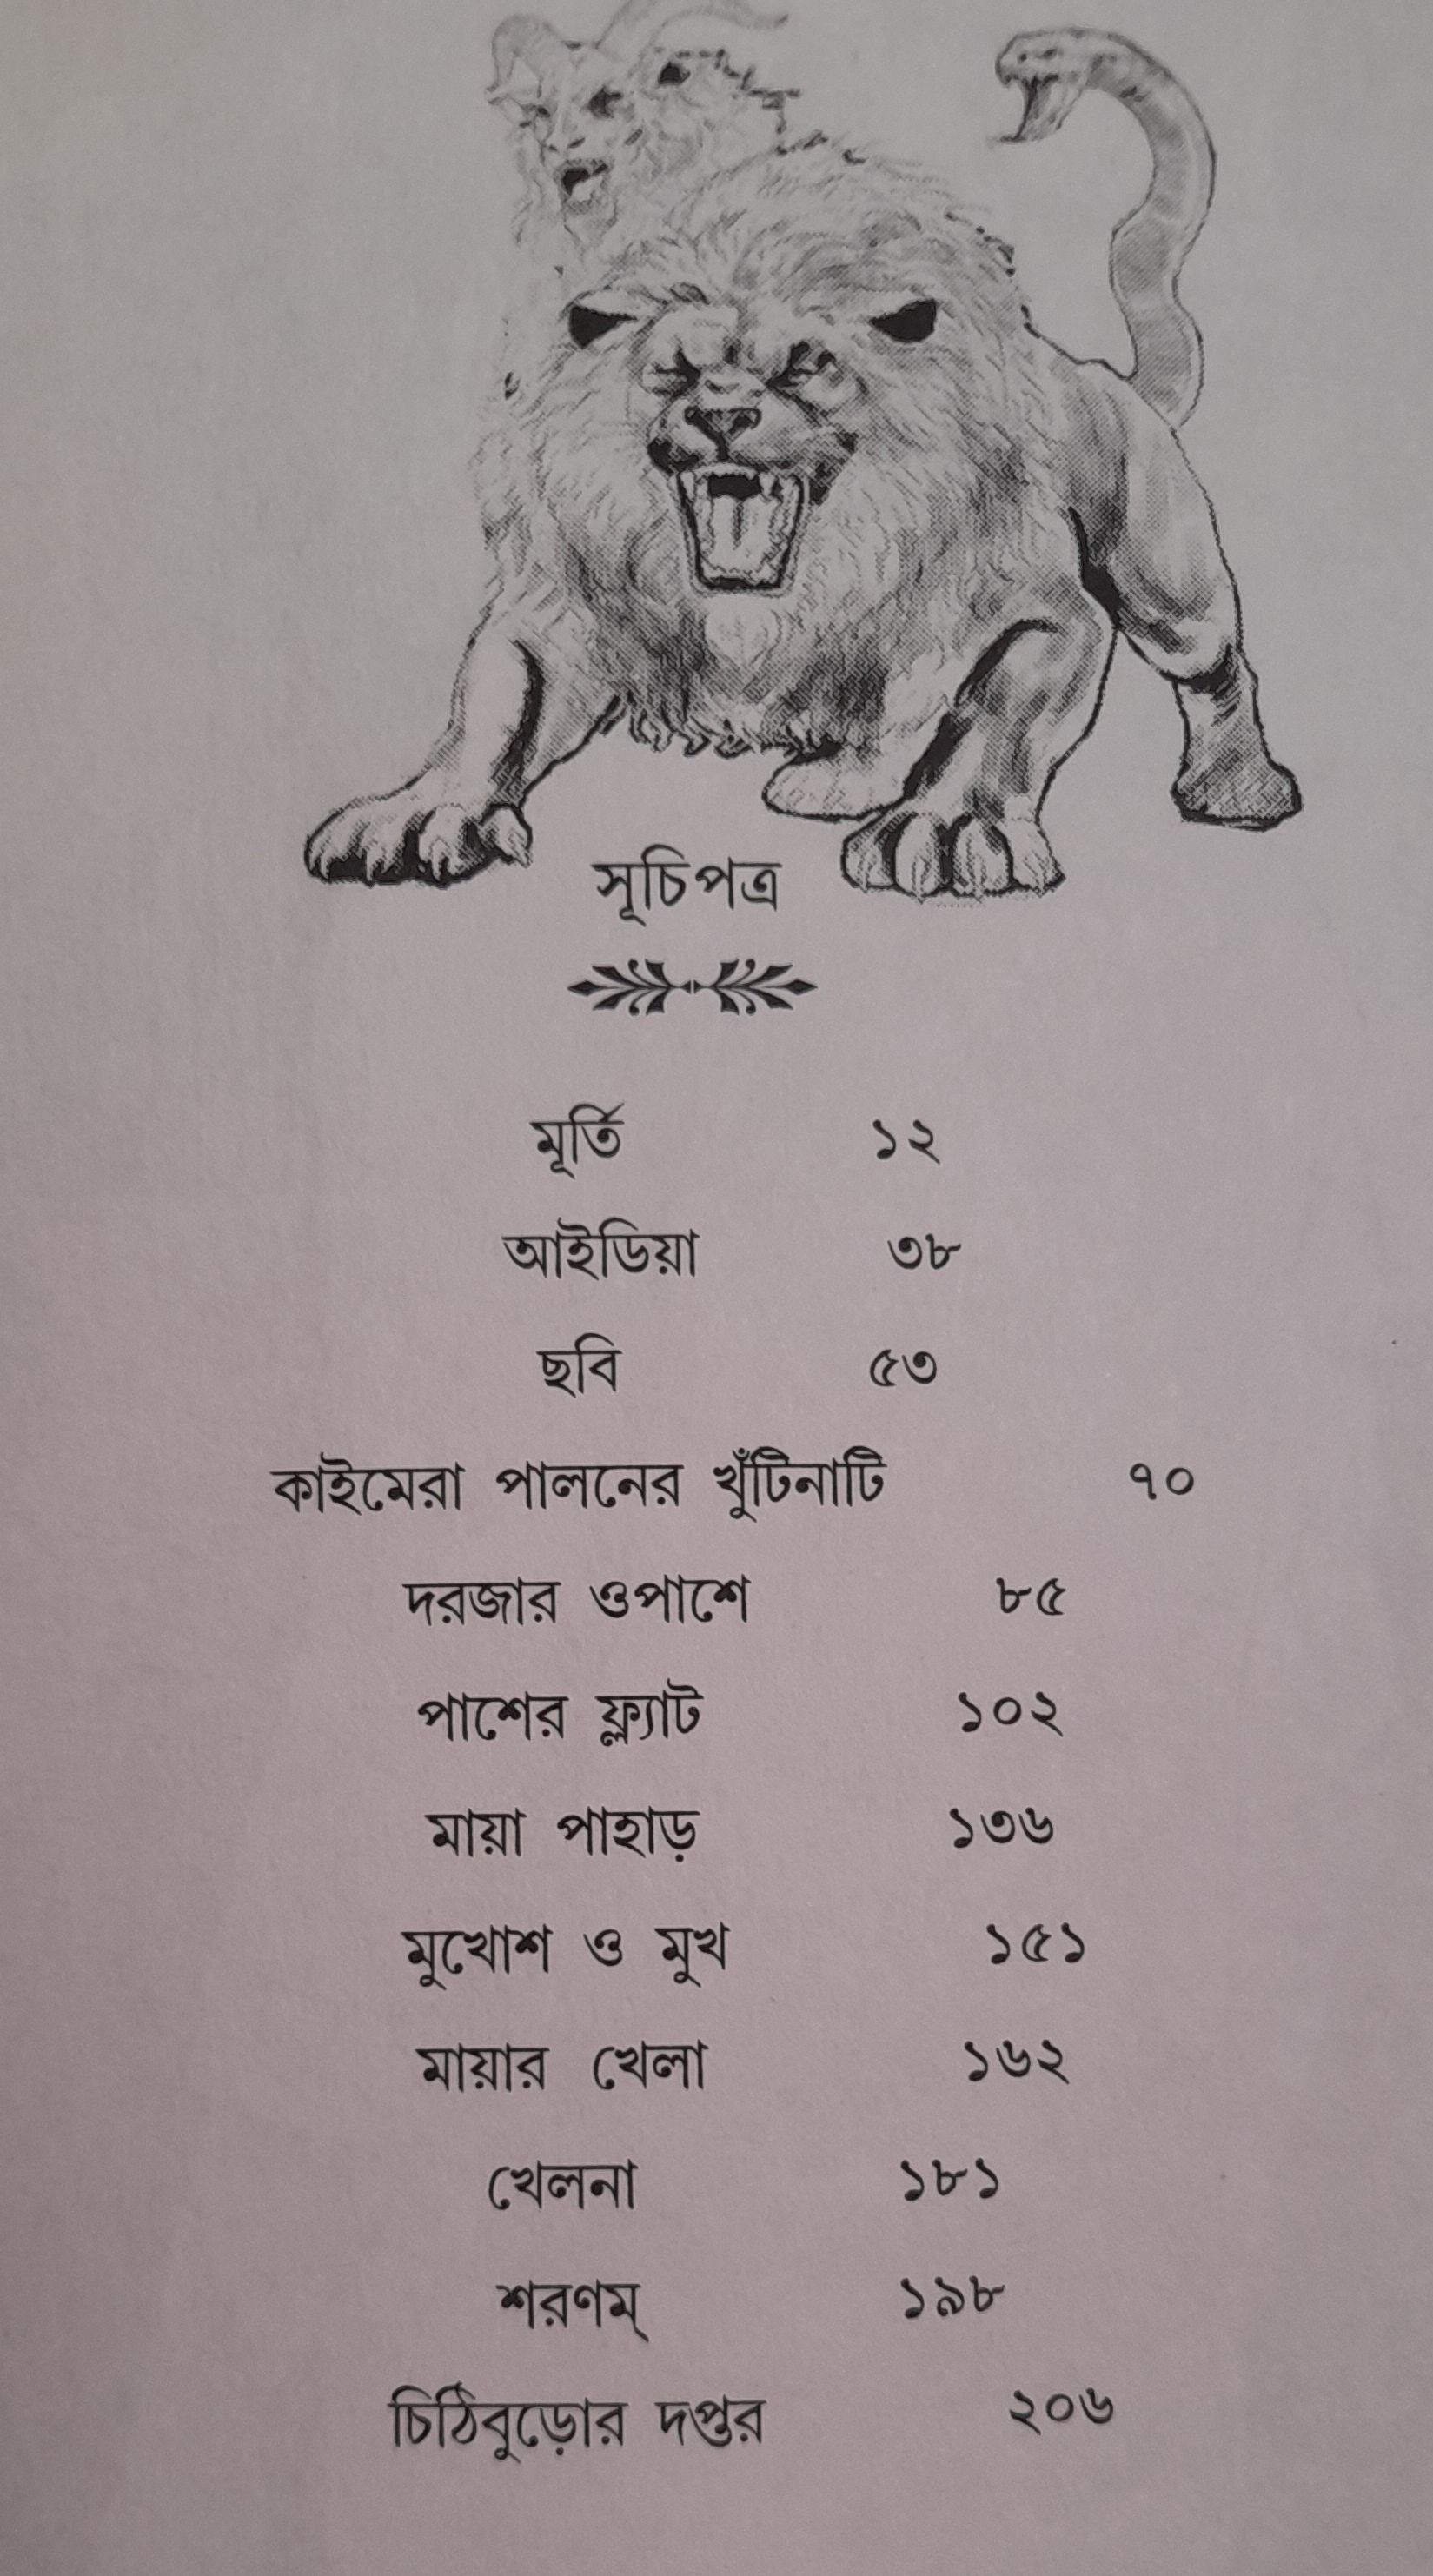 সূচিপত্র
মূর্তি ১২
আইডিয়া ৩৮
ছবি ৫৩
কাইমেরা পালনের খুঁটিনাটি ৭০
দরজার ওপাশে ৮৫
পাশের ফ্ল্যাট ১০২
মায়া পাহাড় ১৩৬
মুখোশ ও মুখ ১৫১
মায়ার খেলা ১৬২
খেলনা ১৮১
শরণম্ ১৯৮
চিঠিবুড়োর দপ্তর ২০৬